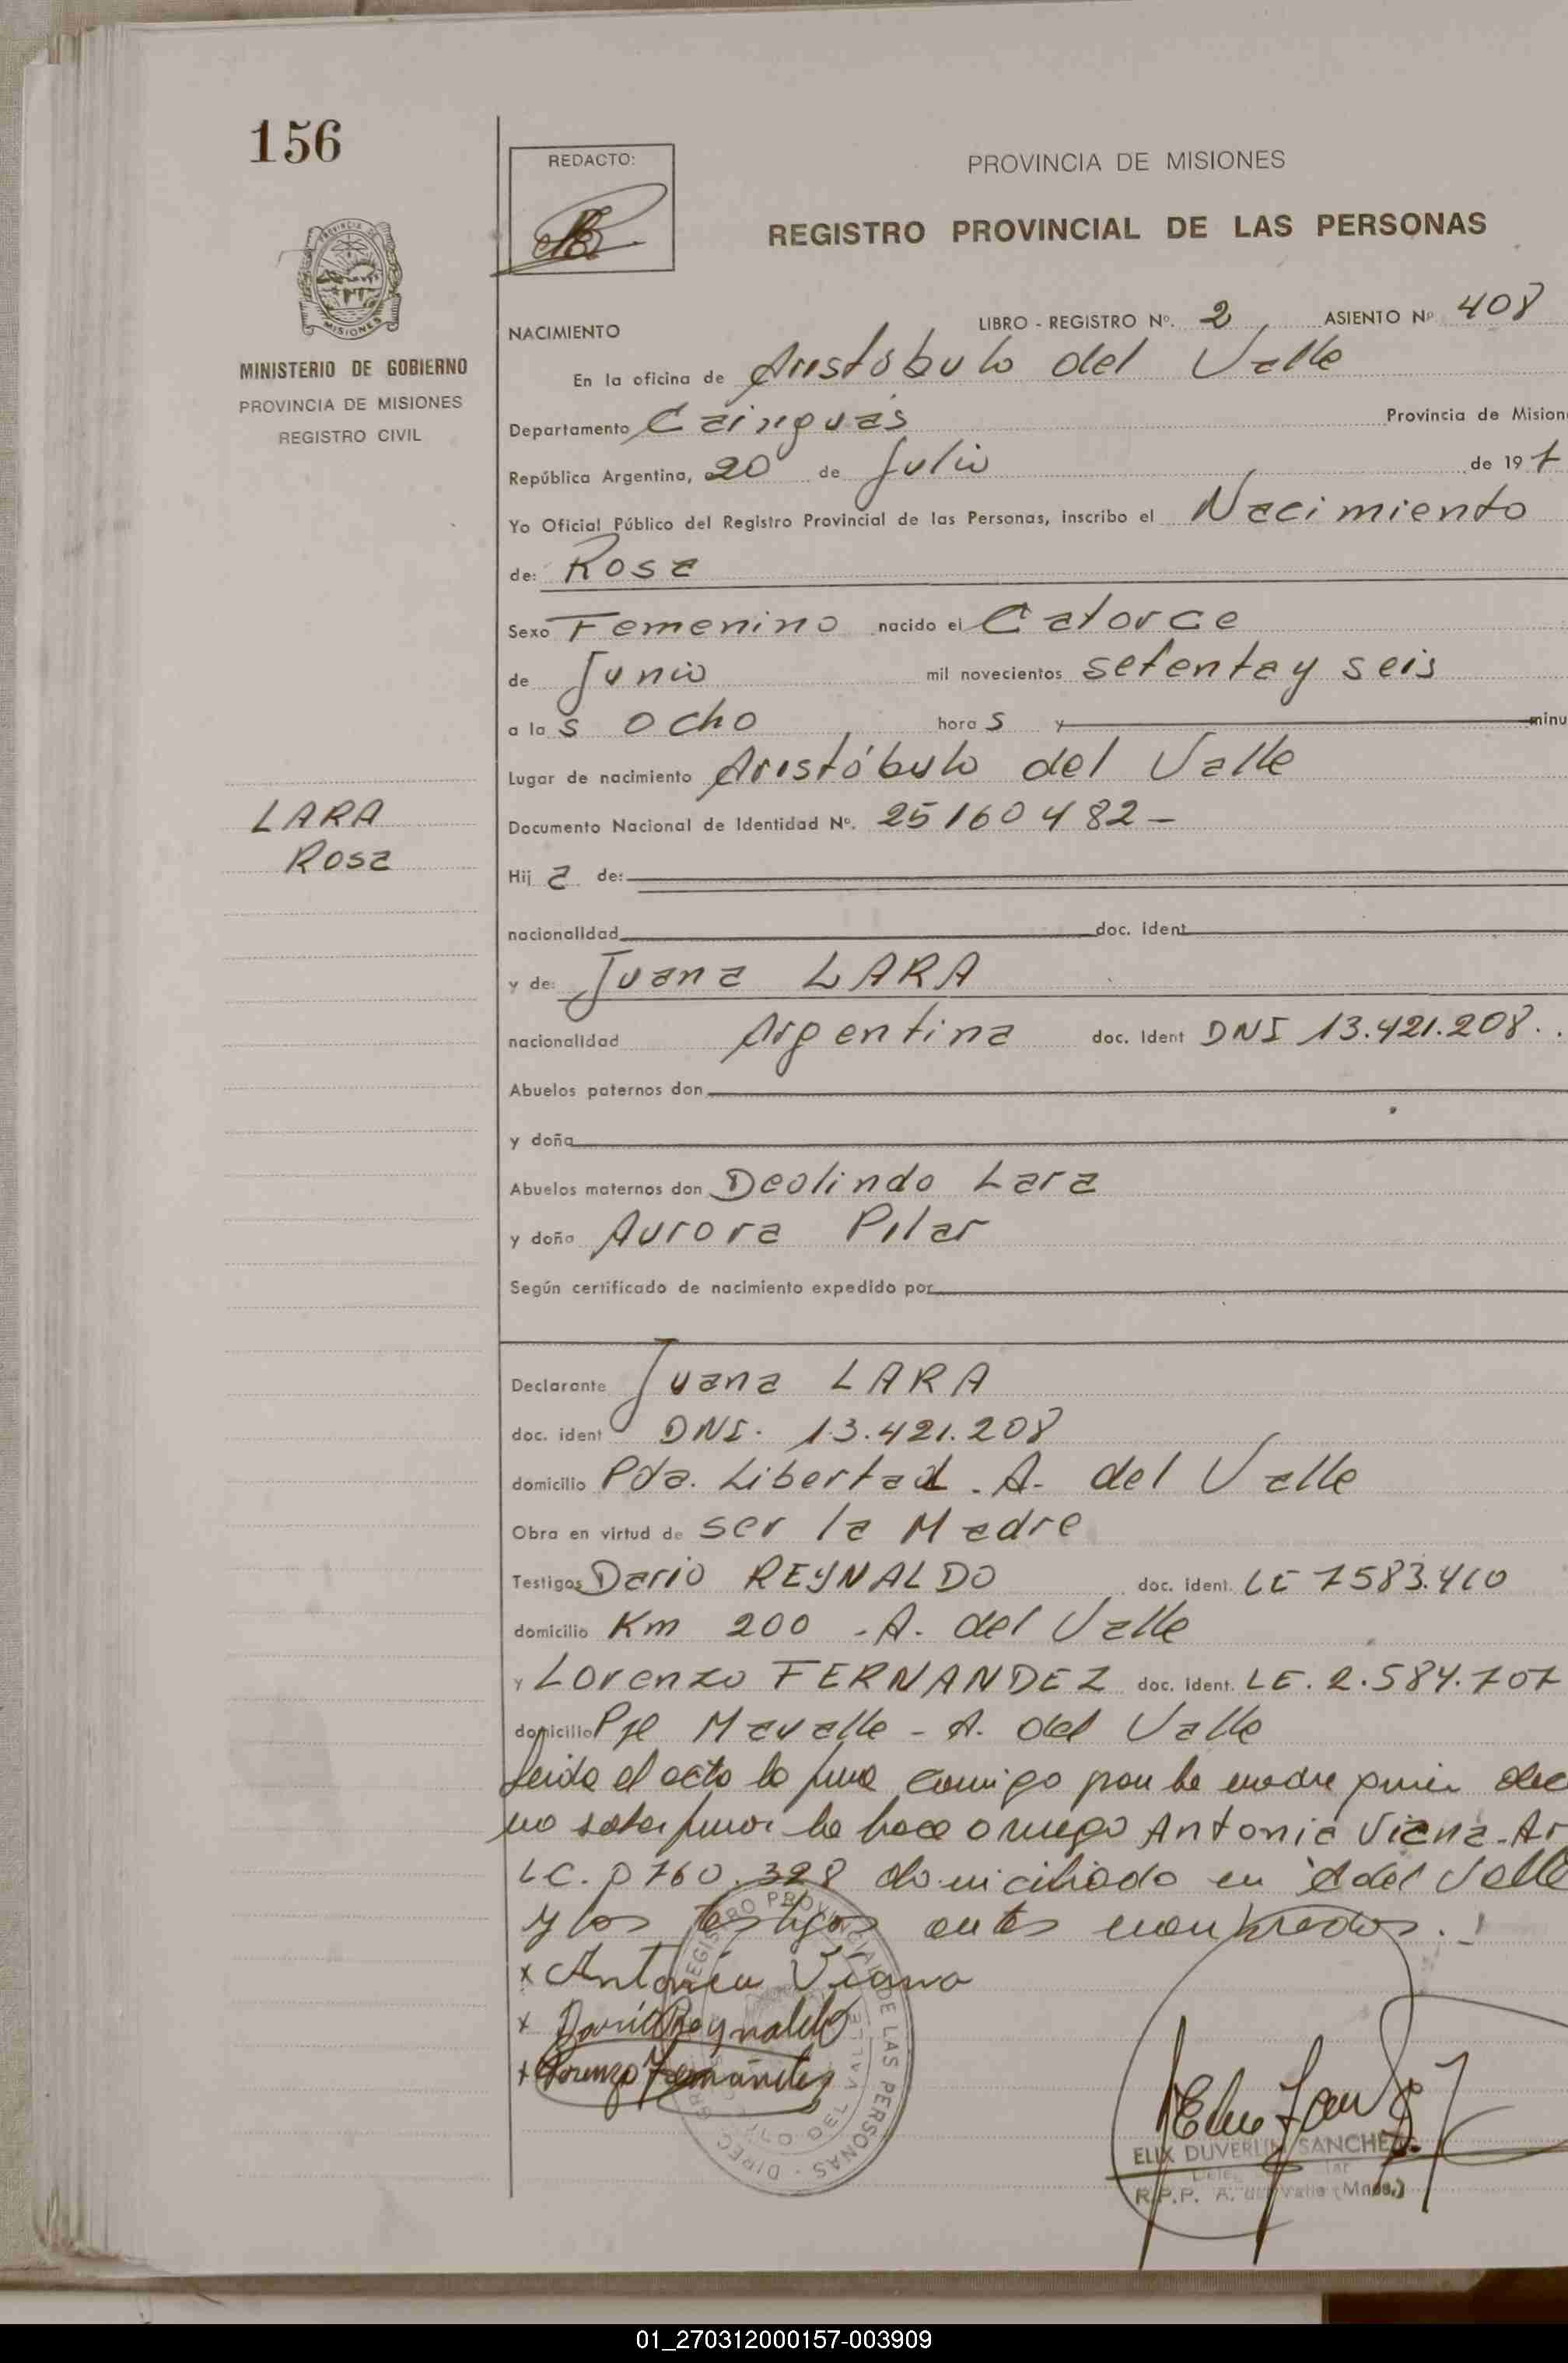 156
REDACTO:
PROVINCIA DE MISIONES
REGISTRO PROVINCIAL DE LAS PERSONAS
MISIONES
MINISTERIO DE GOBIERNO
PROVINCIA DE MISIONES
REGISTRO CIVIL
NACIMIENTO LIBRO - REGISTRO Nº. 2 ASIENTO Nº 408
En la oficina de Aristóbulo del Valle
Departamento Cainguás Provincia de Mision
República Argentina, 20 de Julio de 197
Yo Oficial Público del Registro Provincial de las Personas, inscribo el Nacimiento
de: Rosa
Sexo Femenino nacido el Catorce
de Junio mil novecientos setenta y seis
a las ocho horas y minu
Lugar de nacimiento Aristóbulo del Valle
LARA
Rosa
Documento Nacional de Identidad Nº. 25160482-
Hija de:
nacionalidad doc. ident
y de: Juana LARA
nacionalidad Argentina doc. Ident DNI 13.421.208.
Abuelos paternos don
y doña
Abuelos maternos don Deolindo Lara
y doña Aurora Pilar
Según certificado de nacimiento expedido por
Declarante Juana LARA
doc. ident DNI. 13.421.208
domicilio Pda. Libertad. A. del Valle
Obra en virtud de ser la Madre
Testigos Dario REYNALDO doc. ident. LE 7583.410
domicilio Km 200 - A. del Valle
y Lorenzo FERNANDEZ doc. Ident. LE. 2.584.707
domicilio Pje Mavalle - A. del Valle
Leida el acta la firma conmigo por la madre quien dec
no saber firmar lo hace a ruego Antonia Viana-Ar
LC. 0760.328 domiciliada en A del Valle
y los testigos antes nombrados.
x Antonia Viana
x Dario Reynaldo
x Lorenzo Fernández
REGISTRO PROVINCIAL DE LAS PERSONAS
DEL VALLE
ELIX DUVERLIN SANCHEZ
R.P.P. A. del Valle (Mnes.)
01_270312000157-003909